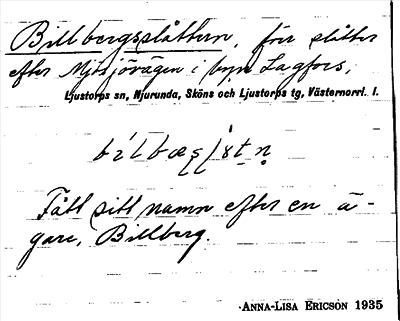 Billbergsslåttern, förr slåtter
efter Mjösjövägen i byn Lagfors,
Ljustorps sn, Njurunda, Sköns och Ljustorps tg, Västernorrl. l.
Fått sitt namn efter en ä-
gare, Billberg.
ANNA-LISA ERICSON 1935